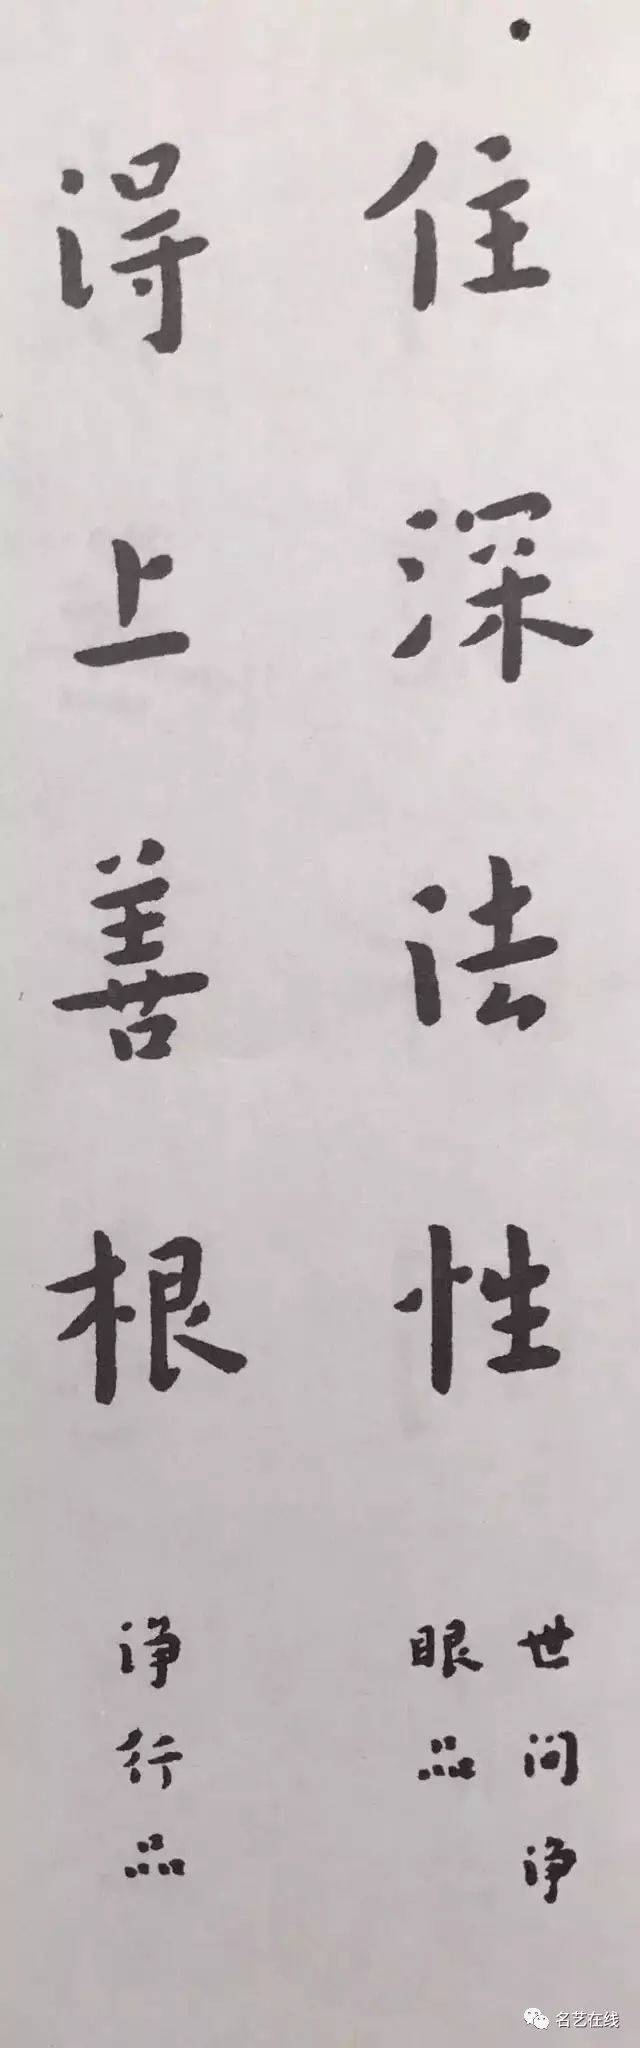 住深法性
世间净
眼品
得上善根
净行品
名艺在线